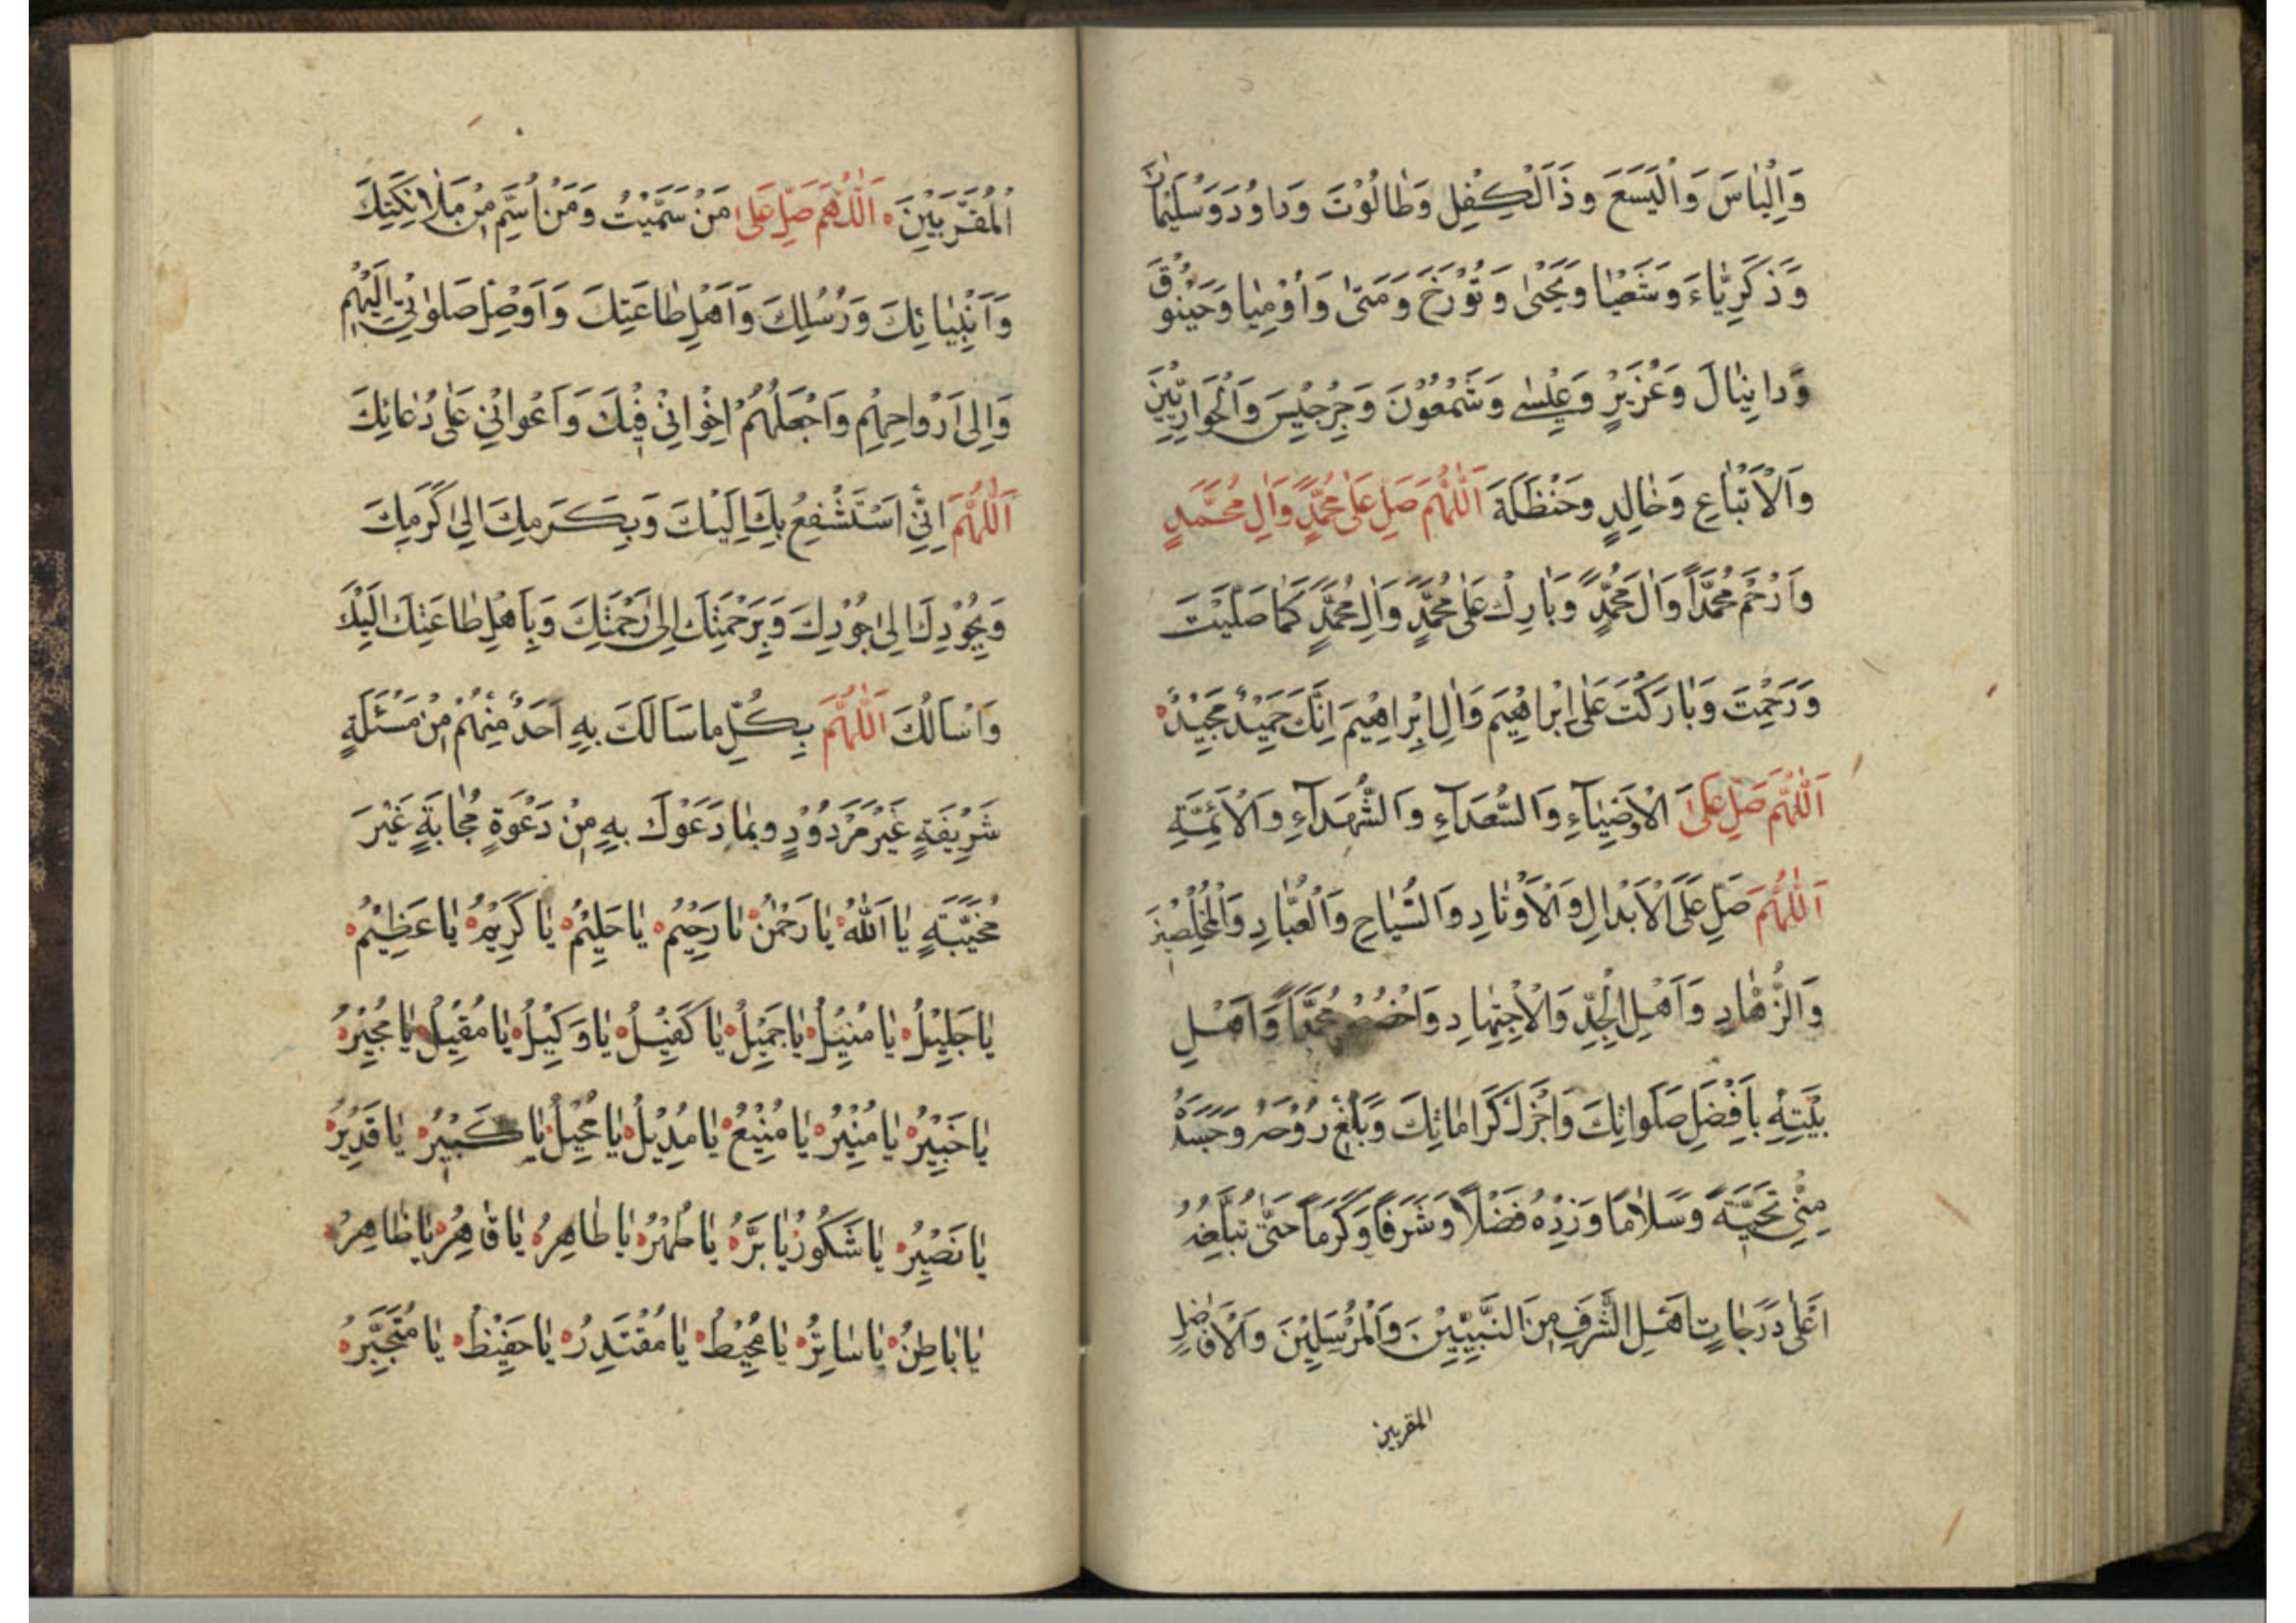 وَاِلْيٰاسَ وَالْيَسَعَ وذَالْكِفْلِ وَطٰالُوْتَ وَداوُدَ وَسُلَيْمٰانَ
وَذَكَرِيّٰاءَ وَشَعْيٰا وَيَحْيىٰ وَتُوْرَخَ وَمَتىٰ وَاُوْمِيٰا وَحَيْنُوْقَ
وَدانِيٰالَ وَعُزَيْرٍ وَعِيْسٰى وَشَمْعُوْنَ وَجِرْجِيْسَ وَالْحَوارِيّيْنَ
وَالْاَتْبٰاعِ وَخٰالِدٍ وحَنْظَلَةَ اَللّٰهُمَّ صَلِّ عَلىٰ مُحَمَّدٍ وَاٰلِ مُحَمَّدٍ
وَارْحَمْ مُحَمَّداً وَاٰلَ مُحَمَّدٍ وَبٰارِكْ عَلىٰ مُحَمَّدٍ وَاٰلِ مُحَمَّدٍ كَمٰا صَلَّيْتَ
وَرَحِمْتَ وَبٰارَكْتَ عَلىٰ اِبْراهِيْمَ وَاٰلِ اِبْراهِيْمَ اِنَّكَ حَمِيْدٌ مَجِيْدٌ
اَللّٰهُمَّ صَلِّ عَلىَ الْاَوْصِيٰاءِ وَالسُّعَدآءِ وَالشُّهَدآءِ وَالْاَئِمَّةِ
اَللّٰهُمَّ صَلِّ عَلىَ الْاَبْدالِ وَالْاَوْتٰادِ وَالسُّيّٰاحِ وَالْعُبّٰادِ وَالْمُخْلِصِيْنَ
وَالزُّهّٰادِ وَاَهْلِ الْجِدِّ وَالْاِجْتِهٰادِ وَاخْصُصْ مُحَمَّداً وَاَهْلِ
بَيْتِهِ بِاَفْضَلِ صَلَواتِكَ وَاَجْزَلِ كَراماتِكَ وَبَلِّغْ رُوْحَهُ وَجَسَدَهُ
مِنّيْ تَحِيَّةً وَسَلٰامًا وَزِدْهُ فَضْلاً وَشَرَفاً وَكَرَماً حَتّىٰ تُبَلِّغَهُ
اَعْلىٰ دَرَجٰاتِ اَهْلِ الشَّرَفِ مِنَ النَّبِيّيْنَ وَالْمُرْسَلِيْنَ وَالْاَفٰاضِلِ
المقربين
الْمُقَرَّبِيْنَ اَللّٰهُمَّ صَلِّ عَلىٰ مَنْ سَمَّيْتُ وَمَنْ اُسَمِّ مِنْ مَلٰائِكَتِكَ
وَاَنْبِيٰائِكَ وَرُسُلِكَ وَاَهْلِ طٰاعَتِكَ وَاَوْصِلْ صَلَوٰتيْ اِلَيْهِمْ
وَاِلىٰ اَرْواحِهِمْ وَاجْعَلْهُمْ اِخْوانيْ فِيْكَ وَاَعْوانيْ عَلىٰ دُعٰائِكَ
اَللّٰهُمَّ اِنّيْ اَسْتَشْفِعُ بِكَ اِلَيْكَ وَبِكَرَمِكَ اِلىٰ كَرَمِكَ
وَبِجُوْدِكَ اِلىٰ جُوْدِكَ وَبِرَحْمَتِكَ اِلىٰ رَحْمَتِكَ وَبِاَهْلِ طٰاعَتِكَ اِلَيْكَ
وَاَسْاَلُكَ اَللّٰهُمَّ بِكُلِّ ما سَاَلَكَ بِهِ اَحَدٌ مِنْهُمْ مِنْ مَسْئَلَةٍ
شَرِيْفَةٍ غَيْرَ مَرْدُوْدٍ وبِمٰا دَعَوْكَ بِهِ مِنْ دَعْوَةٍ مُجٰابَةٍ غَيْرَ
مُخَيَّبَةٍ يٰا اَللّٰهُ يٰا رَحْمٰنُ يٰا رَحِيْمُ يٰا حَلِيْمُ يٰا كَرِيْمُ يٰا عَظِيْمُ
يٰا جَلِيْلُ يٰا مُنِيْلُ يٰا جَمِيْلُ يٰا كَفِيْلُ يٰا وَكِيْلُ يٰا مُقِيْلُ يٰا مُجِيْرُ
يٰا خَبِيْرُ يٰا مُنِيْرُ يٰا مُنِيْعُ يٰا مُدِيْلُ يٰا مُحِيْلُ يٰا كَبِيْرُ يٰا قَدِيْرُ
يٰا نَصِيْرُ يٰا شَكُوْرُ يٰا بَرُّ يٰا طُهْرُ يٰا طٰاهِرُ يٰا قٰاهِرُ يٰا ظٰاهِرُ
يٰا بٰاطِنُ يٰا سٰاتِرُ يٰا مُحِيْطُ يٰا مُقْتَدِرُ يٰا حَفِيْظُ يٰا مُتَجَبِّرُ